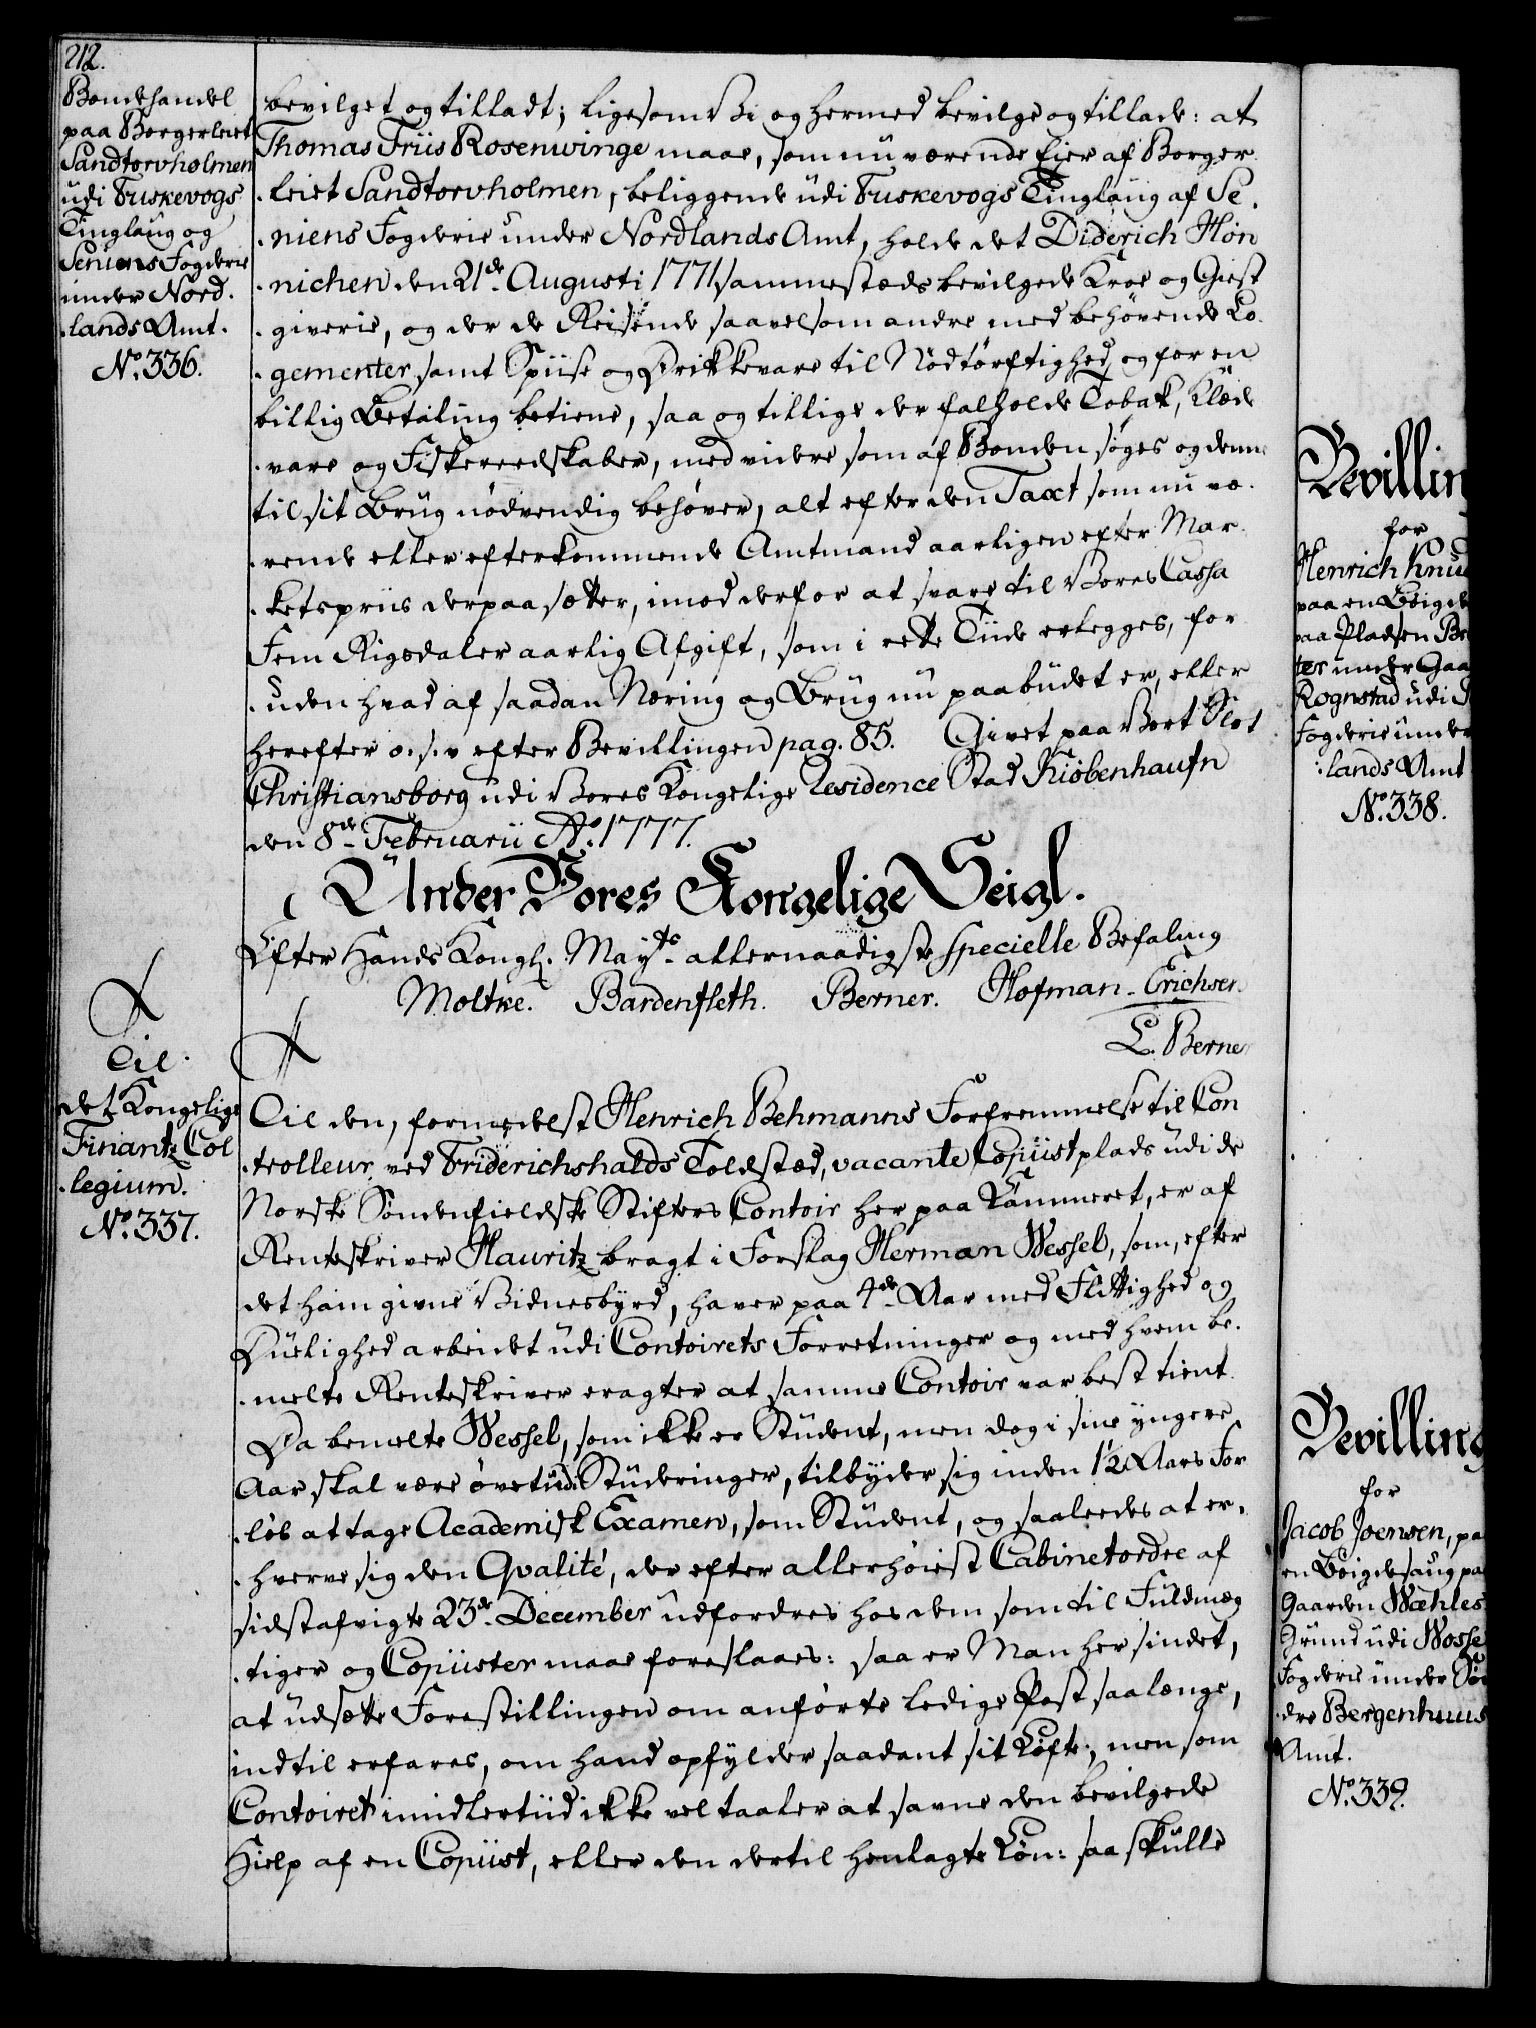 212.
Bondehandel
paa Borgerleiet
Sandtorvholmen
udi Fuskevogs
Tinglaug og
Seniens Fogderie
under Nord.
.lands Amt.
No. 336.
bevilget og tilladt; ligesom Vi og hermed bevilge og tillade: at
Thomas Friis Rosenwinge maae, som nu værende Eier af Borger
.leiet Sandtorvholmen, beliggende udi Fuskevogs Tinglaug af Se.
.niens Fogderie under Nordlands Amt, holde det Diderich Hön
.nichen den 21de Augusti 1771 sammestæds bevilgede Kroe og Giest
.giverie, og der de Reisende saavelsom andre med behövende Lo.
.gementer samt Spiise og Drikkevare til Nödtörftighed, og for en
billig Betaling betiene, saa og tillige der falholde Tobak, Klæde
.vare og Fiskereedskaber, med videre som af Bonden söges og denne
til sit Brug nödvendig behöver, alt efter den Taxt som nu væ.
.rende eller efterkommende Amtmand aarligen efter Mar.
.ketspriis derpaa sætter, imod derfor at svare til Vores Cassa
Fem Rigsdaler aarlig Afgift, som i rette Tiide erlegges, for
.uden hvad af saadan Næring og Brug nu paabudet er, eller
herefter o. s. v efter Bevillingen pag. 85. Givet paa Vort Slot
Christiansborg udi Vores Kongelige Residence Stad Kiöbenhaufn
den 8de Februarii Ao. 1777.
Under Vores Kongelige Seigl.
Efter Hands Kongl. Mayts. allernaadigste specielle Befaling
Moltke. Bardenfleth. Berner. Hofman - Erichsen.
L. Berner
Til
det Kongelige
Finantz Col
.legium.
No. 337.
Til den, formedelst Henrich Behmanns Forfremmelse til Con
.trolleur ved Friderichshalds Toldstæd, vacante Copiistplads udi de
Norske Söndenfieldske Stifters Contoir her paa Kammeret, er af
Renteskriver Hauritz bragt i Forslag Herman Wessel, som, efter
det ham givne Vidnesbyrd, haver paa 4de Aar med Flittighed og
Duelighed arbeidet udi Contoirets Forretninger og med hvem be.
.melte Renteskriver eragter at samme Contoir var best tient.
Da bemelte Wessel, som ikke er Student, men dog i sine yngere
Aar skal være övet udi Studeringer, tilbyder sig inden 1/2 Aars For
.löb at tage Academisk Examen, som Student, og saaledes at er.
.hverve sig den Qvalité, der efter allerhöiest Cabinetordre af
sidstafvigte 23de December udfordres hos dem som til Fuldmæg
.tiger og Copiister maae foreslaaes: saa er Man her sindet,
at udsætte Forestillingen om anförte ledige Post saalænge,
indtil erfares, om hand opfylder saadant sit Löfte; men som
Contoiret imidlertiid ikke vel taaler at savne den bevilgede
Hielp af en Copiist, eller den dertil henlagte Lön: saa skulle
Bevilling
for
Henrich Knud
paa en Böigde
paa Pladsen Be
ter under Gaa
Rognstad udi
Fogderie under
.lands Amt
No. 338.
Bevilling
for
Jacob Joensen, pa
en Böigdesaug pa
Gaarden Wæhles
Grund udi Wosse
Fogderie under Sön
.dre Bergenhuus
Amt.
No. 339.